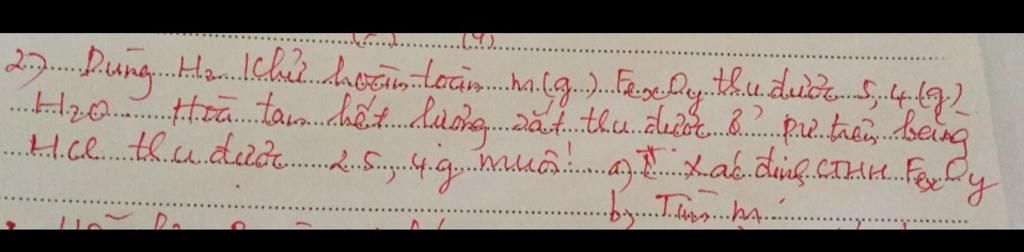 2) Dùng H₂ khử hoàn toàn m(g) FexOy thu được 5,4(g)
H₂O Hoà tan hết lượng sắt thu được ở pư trên bằng
HCl thu được 25,4g muối a) xác định CTHH FexOy
b) Tìm m